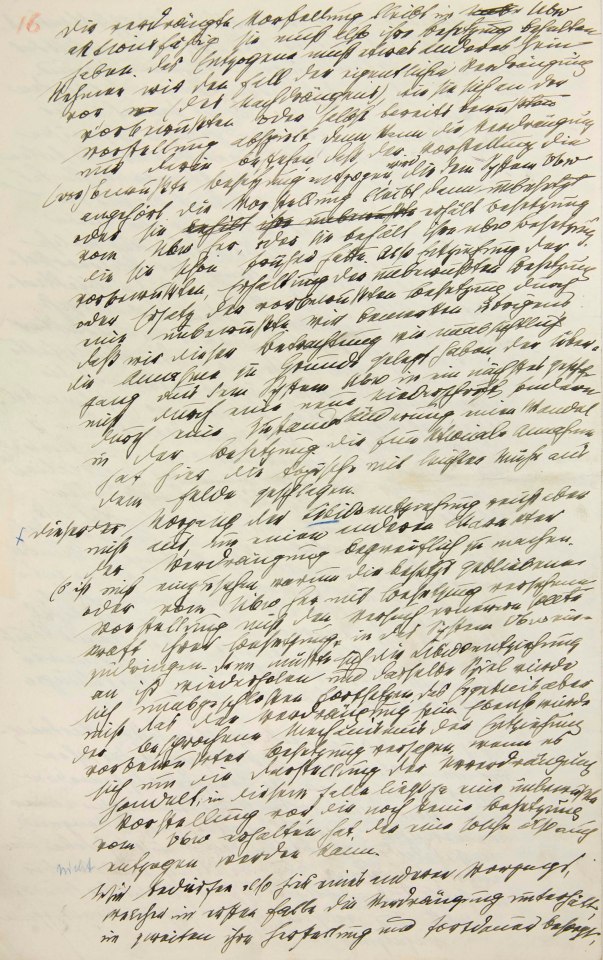 16
die verdrängte Vorstellung bleibt im Ubw
aktionsfähig, sie muß also ihre Besetzung behalten
haben. Das Entzogene muß etwas anderes sein.
Nehmen wir den Fall der eigentlichen Verdrängung
vor (des Nachdrängens), wie sie sich an der
vorbewußten oder selbst bereits bewußten
Vorstellung abspielt, dann kann die Verdrängung
nur darin bestehen, daß der Vorstellung die
(vor)bewußte Besetzung entzogen wird, die dem System Vbw
angehört. Die Vorstellung bleibt dann unbesetzt
oder sie erhält ihre unbewußte erhält Besetzung
vom Ubw her, oder sie behält die ubw Besetzung,
die sie schon früher hatte. Also Entziehung der
vorbewußten, Erhaltung der unbewußten Besetzung
oder Ersatz der vorbewußten Besetzung durch
eine unbewußte. Wir bemerken übrigens,
daß wir dieser Betrachtung wie unabsichtlich
die Annahme zu Grunde gelegt haben, der Über-
gang aus dem System Ubw in ein nächstes geschehe
nicht durch eine neue Niederschrift, sondern
durch eine Zustandsänderung, einen Wandel
in der Besetzung. Die funktionale Annahme
hat hier die topische mit leichter Mühe aus
dem Felde geschlagen.
Dieser Vorgang der Libidoentziehung reicht aber
nicht aus, um einen anderen Charakter
der Verdrängung begreiflich zu machen.
Es ist nicht einzusehen, warum die besetzt gebliebene
oder vom Ubw her mit Besetzung versehene
Vorstellung nicht den Versuch erneuern sollte,
kraft ihrer Besetzung in das System Vbw ein-
zudringen. Dann müßte sich die Libidoentziehung
an ihr wiederholen und dasselbe Spiel würde
sich unabgeschlossen fortsetzen, das Ergebnis aber
nicht das der Verdrängung sein. Ebenso würde
der besprochene Mechanismus der Entziehung
vorbewußter Besetzung versagen, wenn es
sich um die Darstellung der Urverdrängung
handelt; in diesem Falle liegt ja eine unbewußte
Vorstellung vor, die noch keine Besetzung
vom Vbw erhalten hat, der eine solche also auch
nicht entzogen werden kann.
Wir bedürfen also hier eines anderen Vorgangs,
welcher im ersten Falle die Verdrängung unterhält,
im zweiten ihre Herstellung und Fortdauer besorgt,